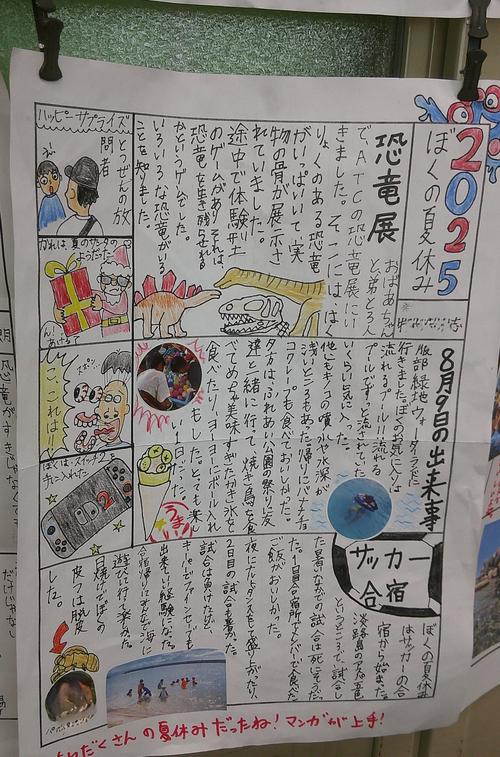 2025
ぼくの夏休み
恐竜展
おばあちゃん
と、弟と3人
でATCの恐竜展にい
きました。そこには、はく
りょくのある恐竜
がいっぱいいて、実
物の骨が展示さ
れていました。
途中で体験型
のゲームがあり、それは
恐竜を生き残らせる
かというゲームでした。
いろいろな恐竜がいる
ことを知りました。
8月9日の出来事
服部緑地ウォ
ーターランドに
行きました。ぼくのお気に入りは
流れるプールです。流れる
プールでずっと流されて
いくらい気に入った。
他にもキノコの噴水や水深が
浅いところもあった。帰りに
も食べておいしかった。
夕方はふれあい公園の祭りに友
達と一緒に行って、焼き鳥を食
べてめちゃ美味すぎた。かき氷を
食べたり、ヨーヨーにボールすくい
もした。とても楽し
い1日だった。
サッカー
合宿
ぼくの夏休み
はサッカーの合
宿から始まった。
淡路島のアスパ五色
というところで、試合し
た。暑いなかでの試合は死にそうだっ
た。1日目、合宿所でみんなで食べた
ご飯がおいしかった。
夜にたんけんダンスをして盛り上がった。
2日目の試合も暑かった。
試合は負けたけど、
キーパーでファインセーブも
出来ていい経験になった。
合宿帰りにみんなで海に
遊びに行って楽しかった。
日焼けでぼくの
皮ふは脱皮
した。
ハッピーサプライズ
とつぜんの放
問者
かれは、夏のサンタの
ようだった
ん!
あげる
スポン
こ、これは!!
ぼくは、スイッチ2を
手に入れた
2
うまい
たくさんの夏休みだったね!マンガが上手!